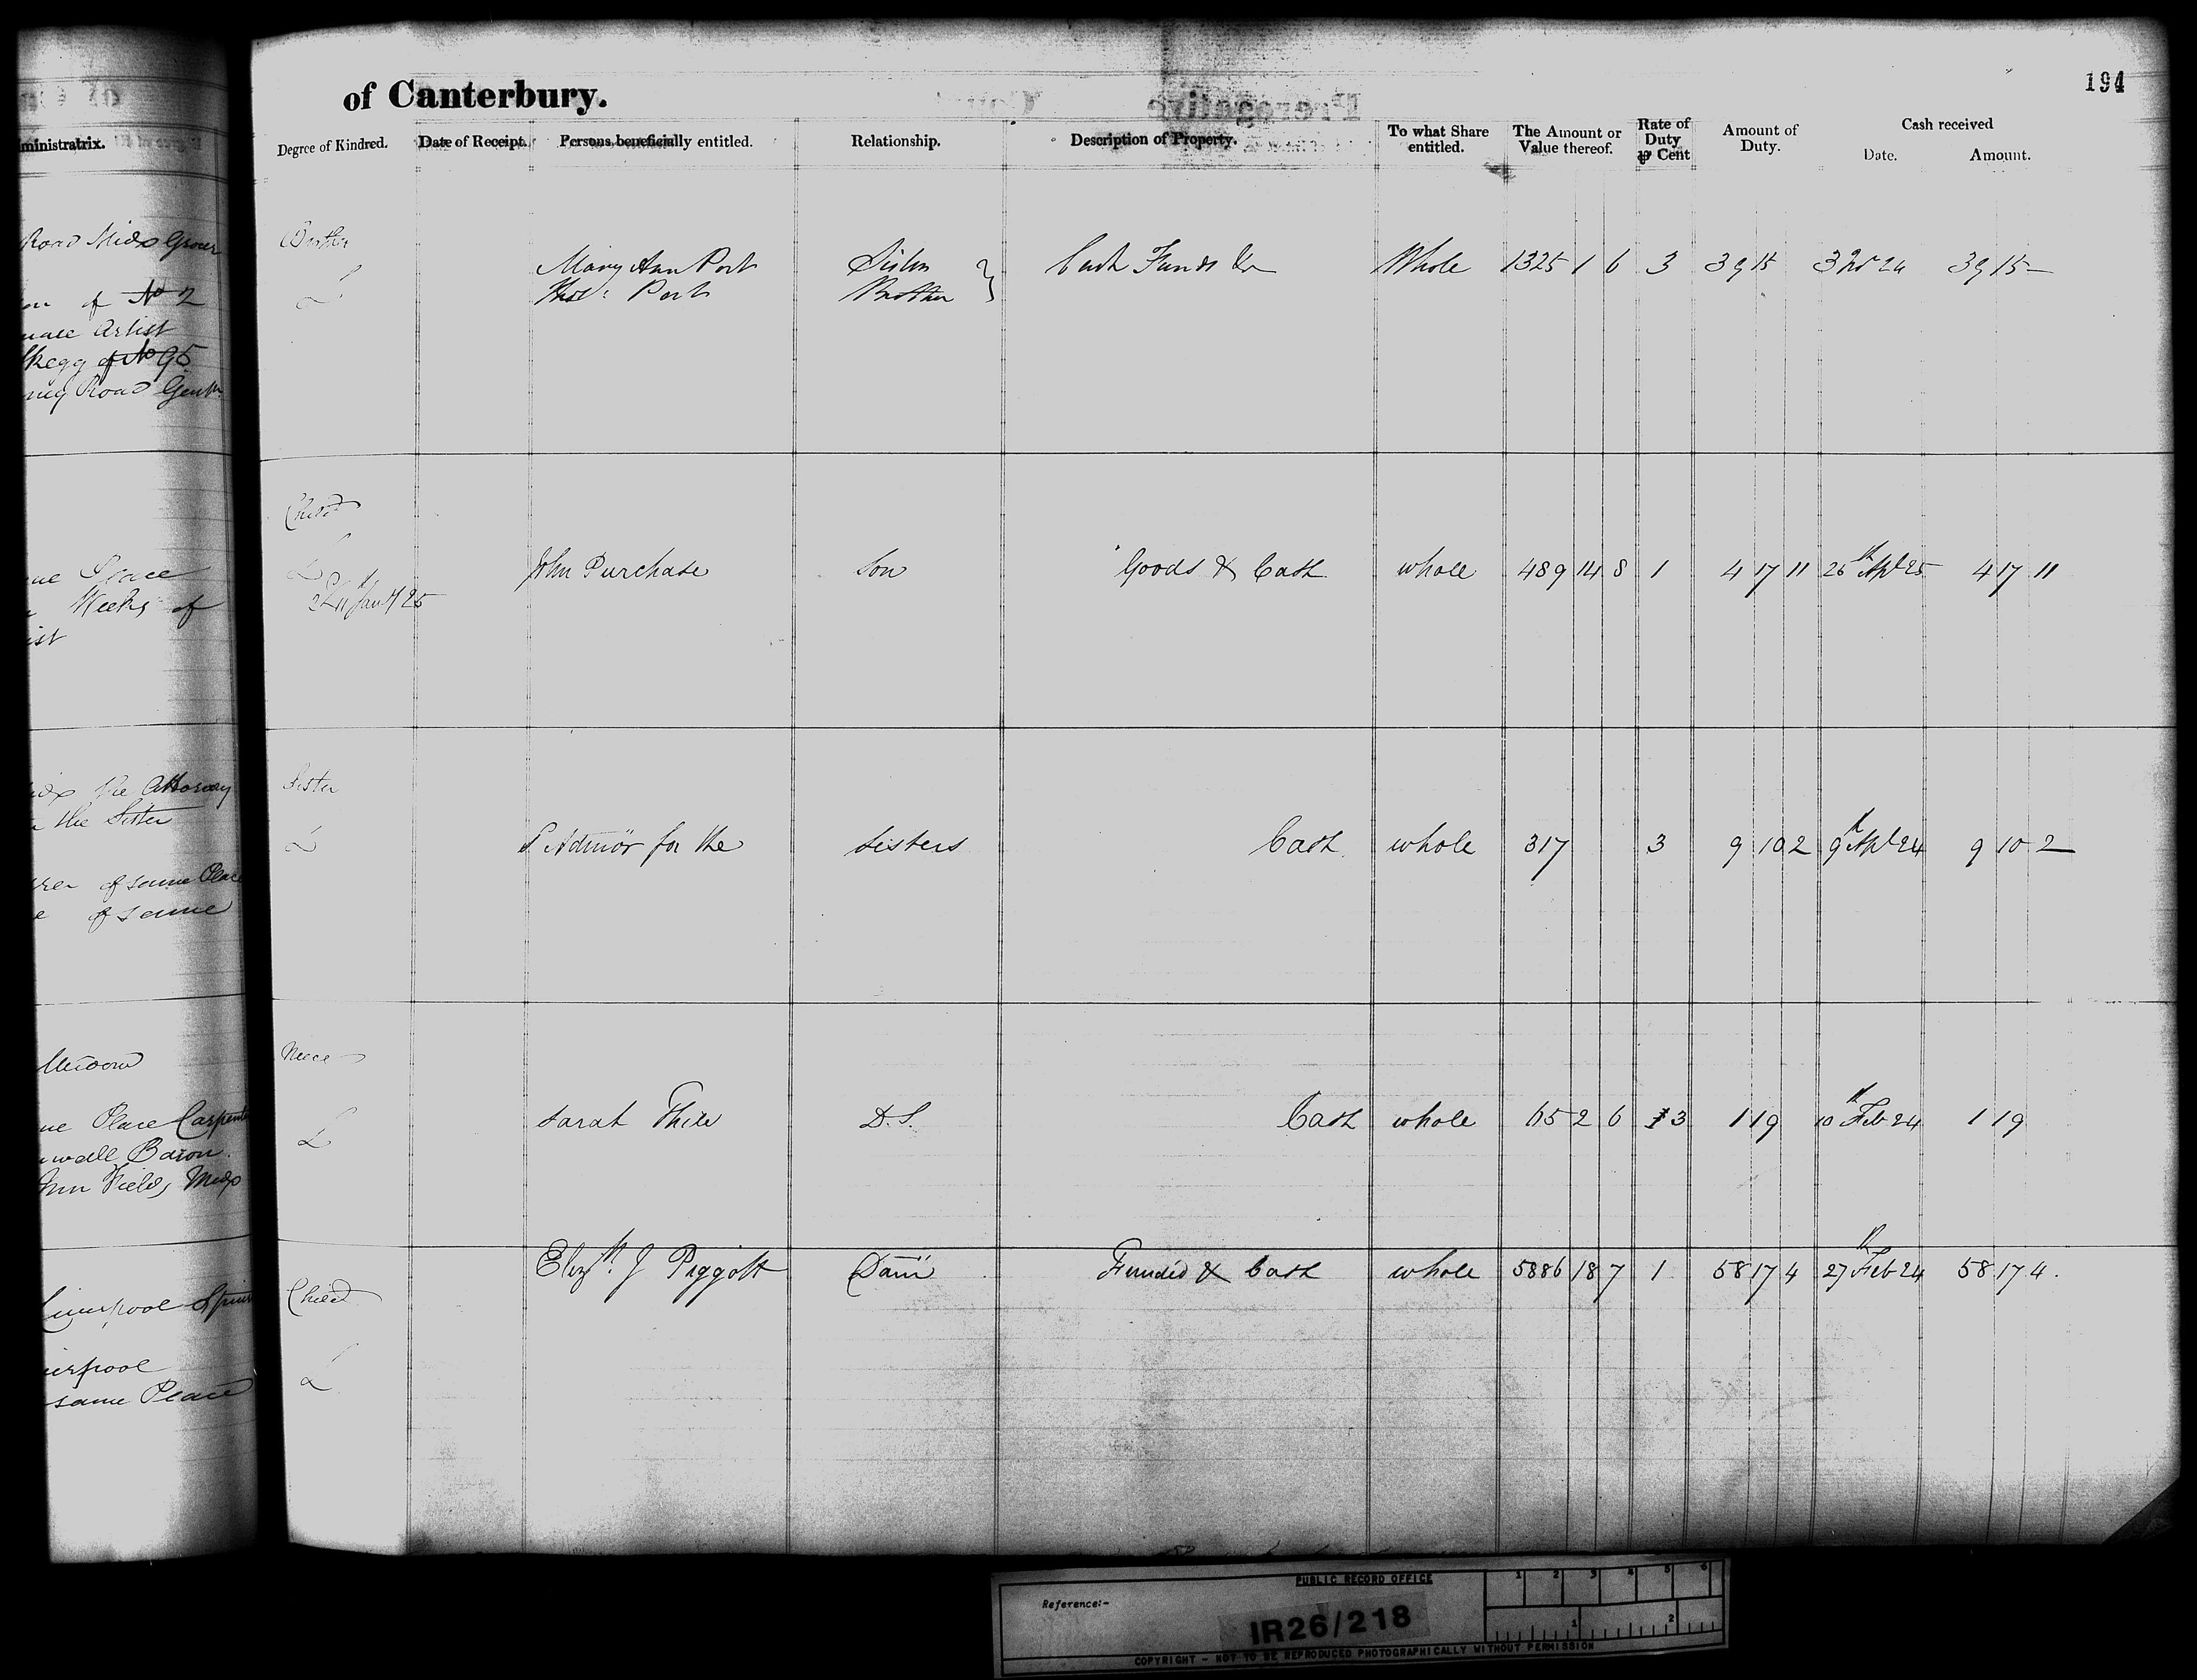 194
of Canterbury.
ministratrix.
Degree of Kindred. Date of Receipt. Persons beneficially entitled. Relationship. Description of Property. To what Share entitled. The Amount or Value thereof. Rate of Duty ⅌ Cent Amount of Duty. Cash received Date. Amount.
Road Midx Grocer
Brother
Mary Ann Port Sister } Cash Funds &c Whole 1325 1 6 3 39 15 39 15 —
Thos: Port Brother
of No 2
Artist
of No 95
Road Gentn
Child
Place
John Purchase Son Goods & Cash whole 489 14 8 1 4 17 11 26th Apl 25 4 17 11
Weeks of
Jany 25
Sister
the Attorney
the Sister
Admor for the Sisters Cash whole 317 3 9 10 2 9th Apl 24 9 10 2
of same Place
of same
Niece
Place Carpenter
Sarah D.S. Cash whole 65 2 6 1 3 1 19 10th Feb 24 1 19
Fields Midx
Elizth J Piggott Daur Funded & Cash whole 5886 18 7 1 58 17 4 27th Feb 24 58 17 4.
Child
Liverpool
same Place
PUBLIC RECORD OFFICE
1 2 3 4 5 6
Reference:-
IR26/218
1 2
COPYRIGHT - NOT TO BE REPRODUCED PHOTOGRAPHICALLY WITHOUT PERMISSION